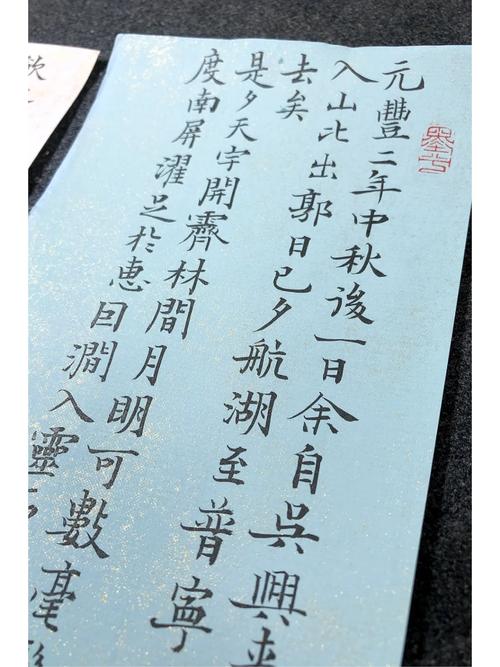 元豐二年中秋後一日余自吳興来
入山比出郭日已夕航湖至普寧
去矣
是夕天宇開霽林間月明可數毫
度南屏濯足扵惠囙澗入靈